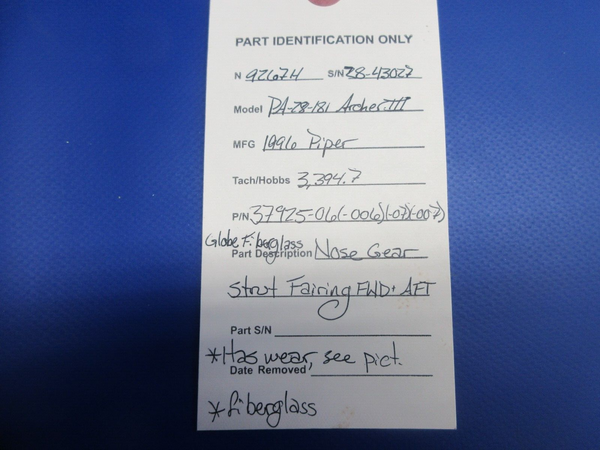 PART IDENTIFICATION ONLY
N 9267H S/N 28-43027
Model PA-28-181 Archer III
MFG 1996 Piper
Tach/Hobbs 3,394.7
P/N 37925-06(-006)(-07)(-007)
Globe Fiberglass
Part Description Nose Gear
Strut Fairing FWD + AFT
Part S/N
*Has wear, see pict.
Date Removed
*fiberglass